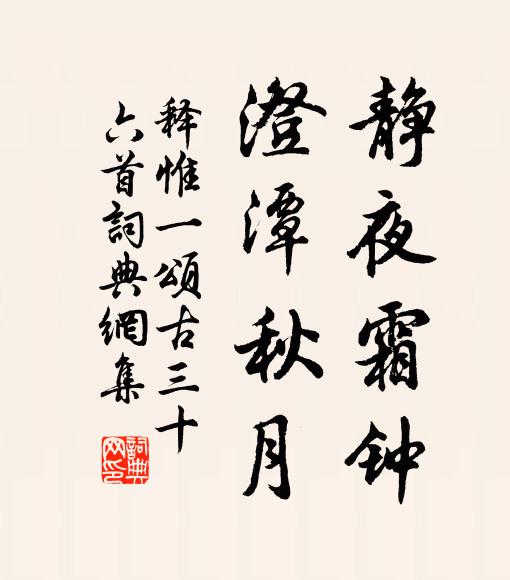 静夜霜钟
澄潭秋月
释惟一颂古三十
六首詞典網集
詞典
网印